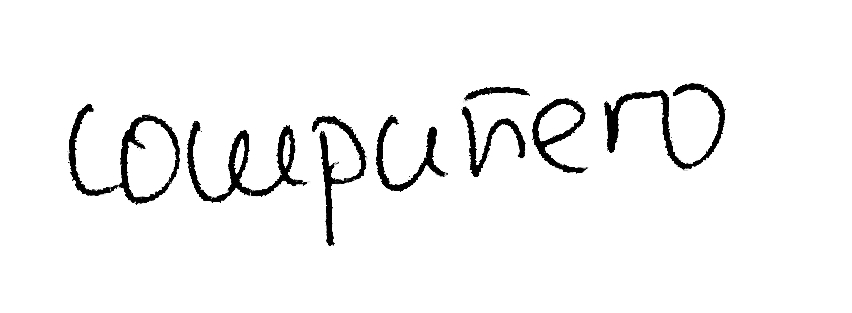 compañero